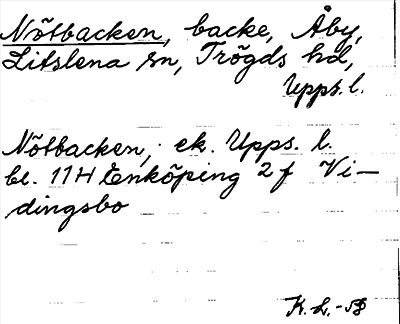 Nötbacken, backe, Åby,
Litslena sn, Trögds hd,
Upps. l.
Nötbacken, ek. Upps. l.
bl. 11H Enköping 2 f Vi-
dingsbo
K. L. -58